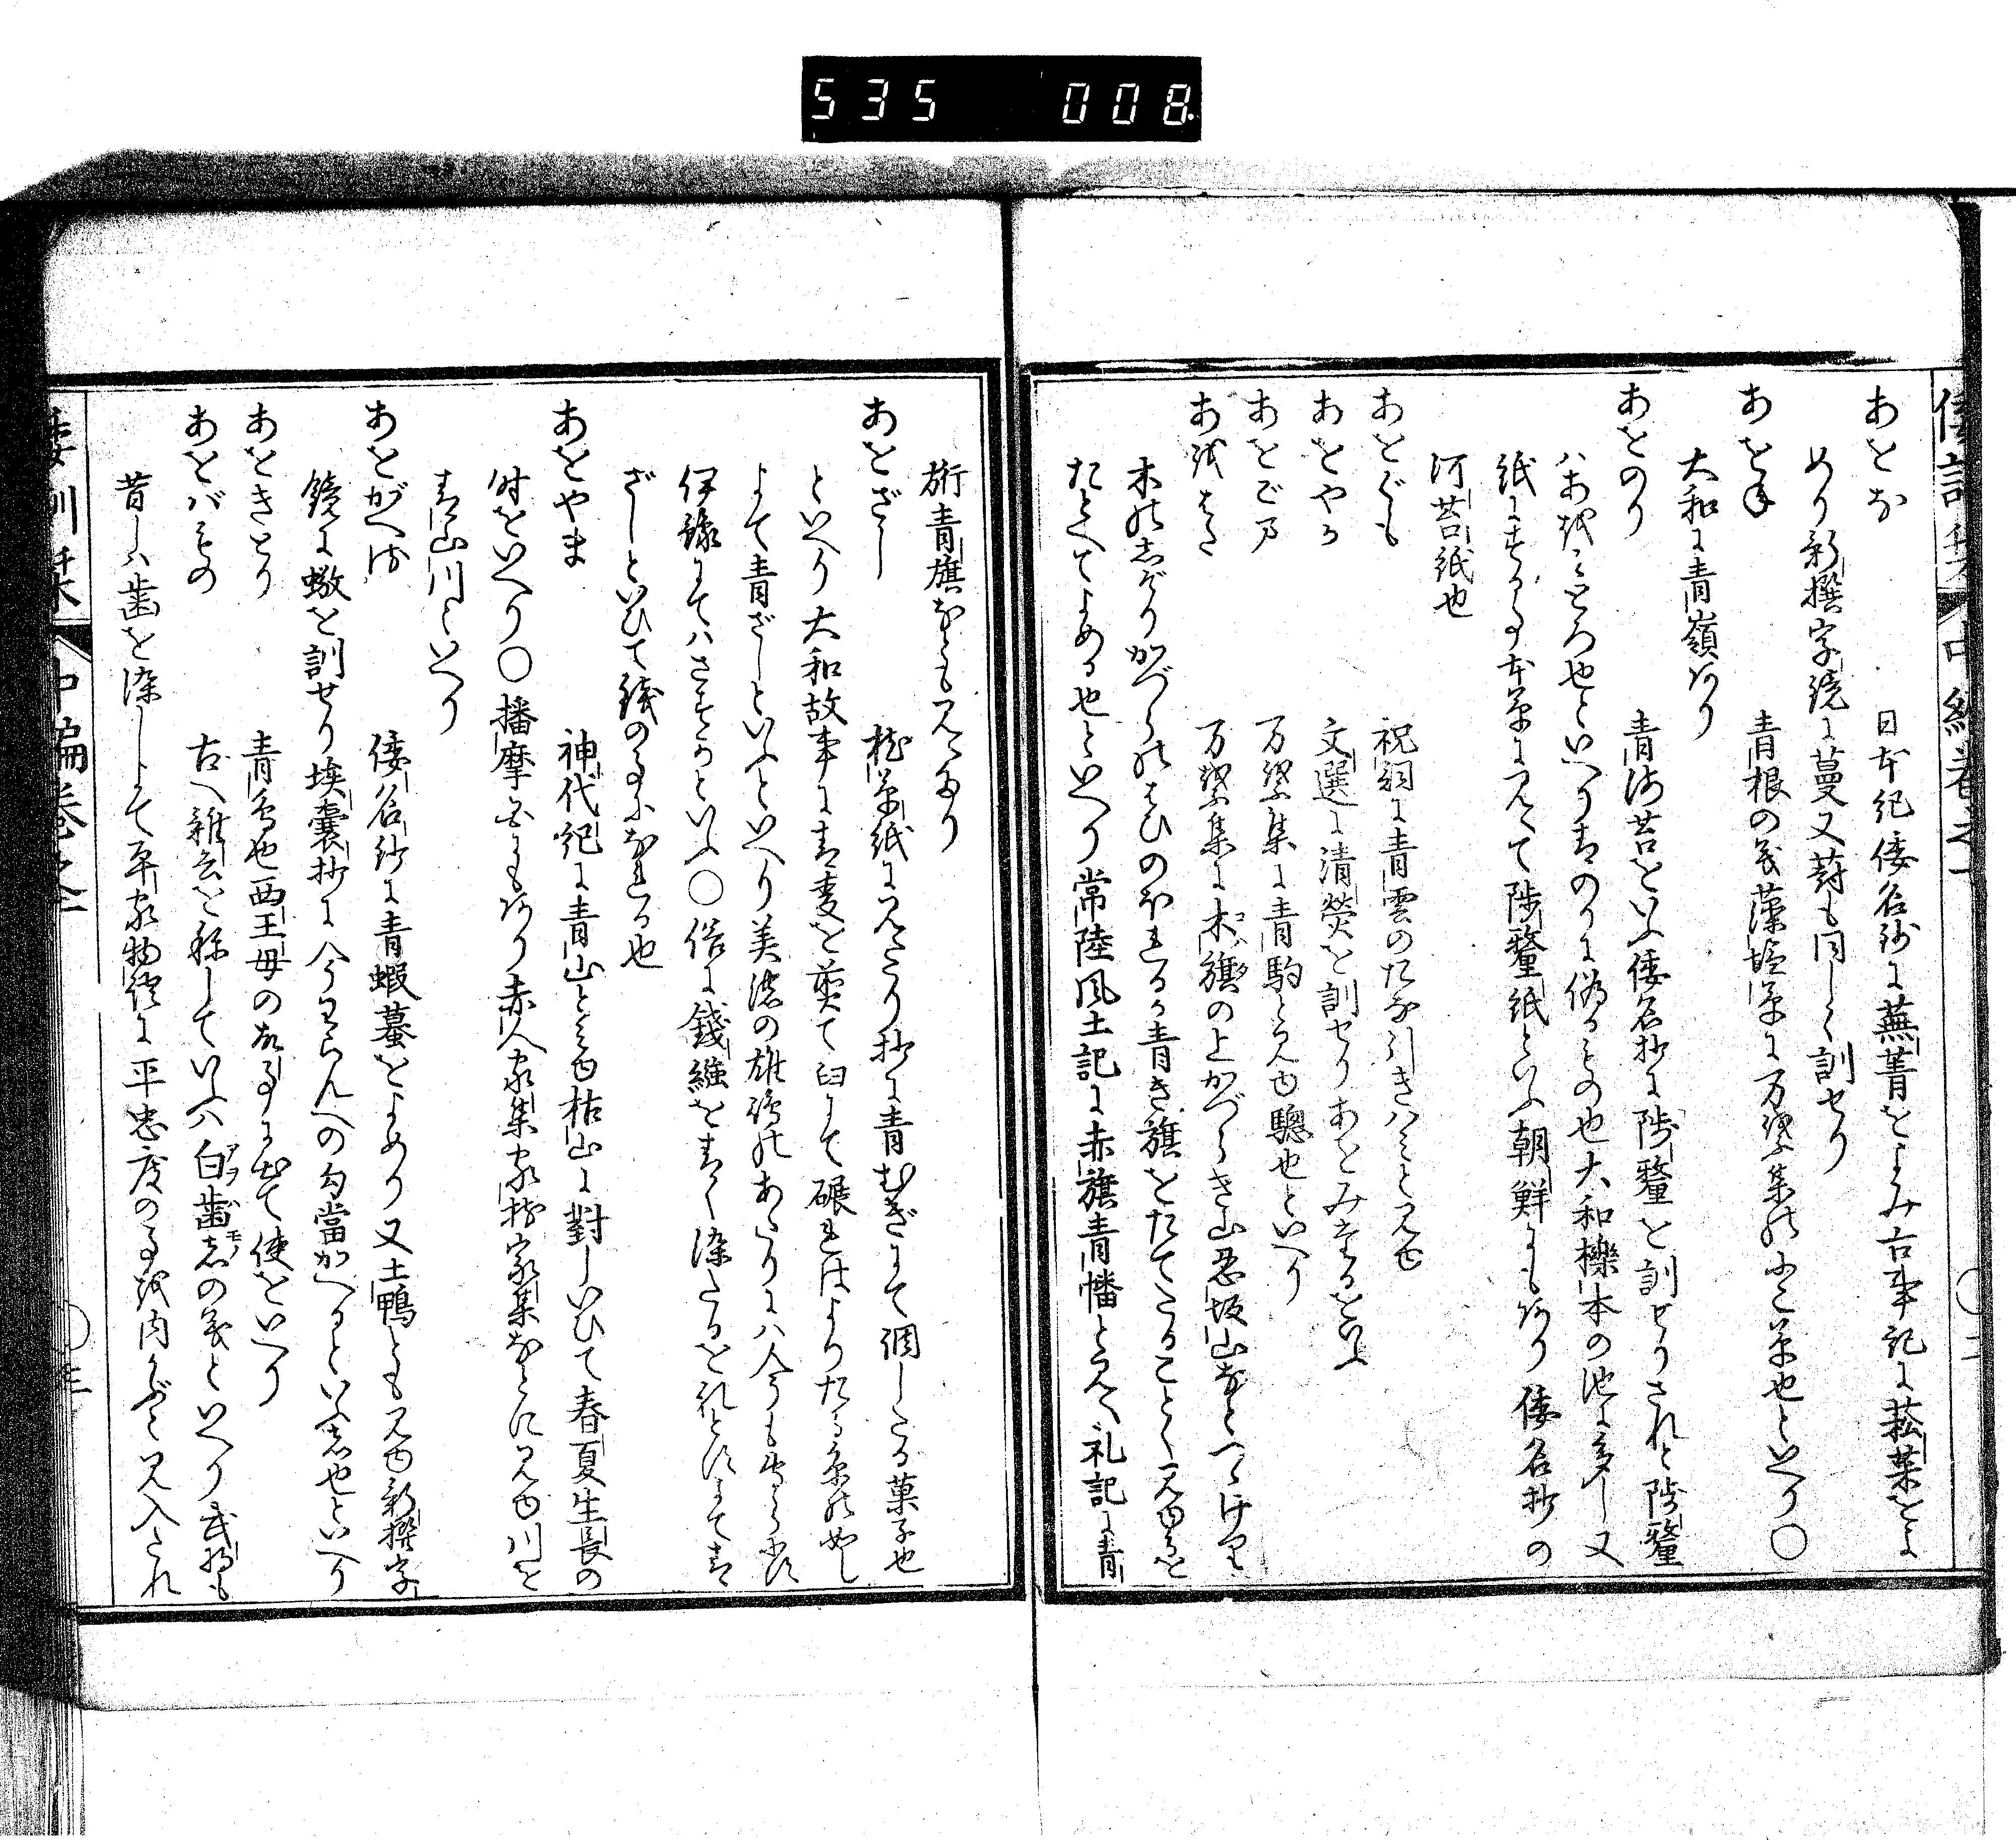 535 008
あをな 日本紀倭名鈔に蕪菁をよみ古事記に菘菜をよ
めり新撰字鏡に蔓又葑も同しく訓せり
あをね 青根の義藻塩草に万葉集の
也といへり〇
大和に青嶺あり
あをのり 青海苔をいふ倭名抄に陟釐を訓せりされと陟釐
ハあをみとろ也といへり青のりに似るもの也大和櫟本の池に多し又
紙にするる事本草に見えて陟釐紙といふ朝鮮にもあり倭名抄の
河苔紙也
あをぐも 祝詞に青雲のたな引きハミと見ゆ
あをやか 文選に清熒を訓せりあをみたるをいふ
あをごま 万葉集に青駒と見ゆ驄也といへり
あをはた 万葉集に木旗の上かづらき山忍坂山なとつゝけり
木のしげりかづらのはひのほれるか青き旗をたてたることく見ゆるを
たとへてよめる也といへり常陸風土記に赤旗青幡と見え礼記に青
旂青旗なとも見えたり
あをざし 枕草紙に見えたり抄に青むぎにて調したる菓子也
といへり大和故事に青麦を煎て臼にて碾はよりたる糸の如し
よて青ざしといふといへり美濃の
あたりにハ今も
伊豫にてハさすかといふ〇俗に錢繦を青く染たるを
青
ざしといひて銭の事になれる也
あをやま 神代紀に青山とミゆ枯山に對しいひて春夏生長の
時をいへり〇播摩
にもあり赤人家集家持家集なとに見ゆ川を
青山川といへり
あをがへる 倭名鈔に青蝦蟇をよめり又土鴨とも見ゆ新撰字
鏡に蝍を訓せり埃囊抄に今わらんへの勾當かへるといふ是也といへり
あをきとり 青鳥也西王母の故事によて使をいへり
あをばもの 古へ雜兵を称していふハ白歯者の義といへり武將も
昔しハ歯を染しよて平家物語に平忠度の事を内かぶと見入たれ